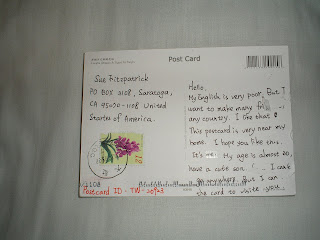 Post Card
Sue Fitzpatrick
PO BOX 3108, Saratoga,
CA 95070-1108 United
Startes of America.
Postcard ID: TW-
Hello,
My English is very poor, But I
want to make many
any country. I like that
This postcard is very near my
home. I hope you like this.
It's My age is almost 30,
have a cute son. I can't
go anywhere. But I can
the card to white you.